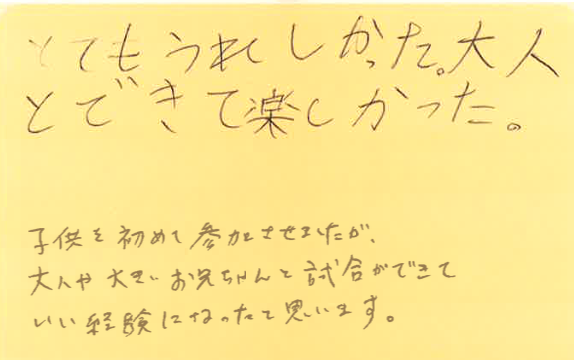 とてもうれしかった。大人
とできて楽しかった。
子供を初めて参加させましたが、
大人や大きいお兄ちゃんと試合ができて
いい経験になったと思います。